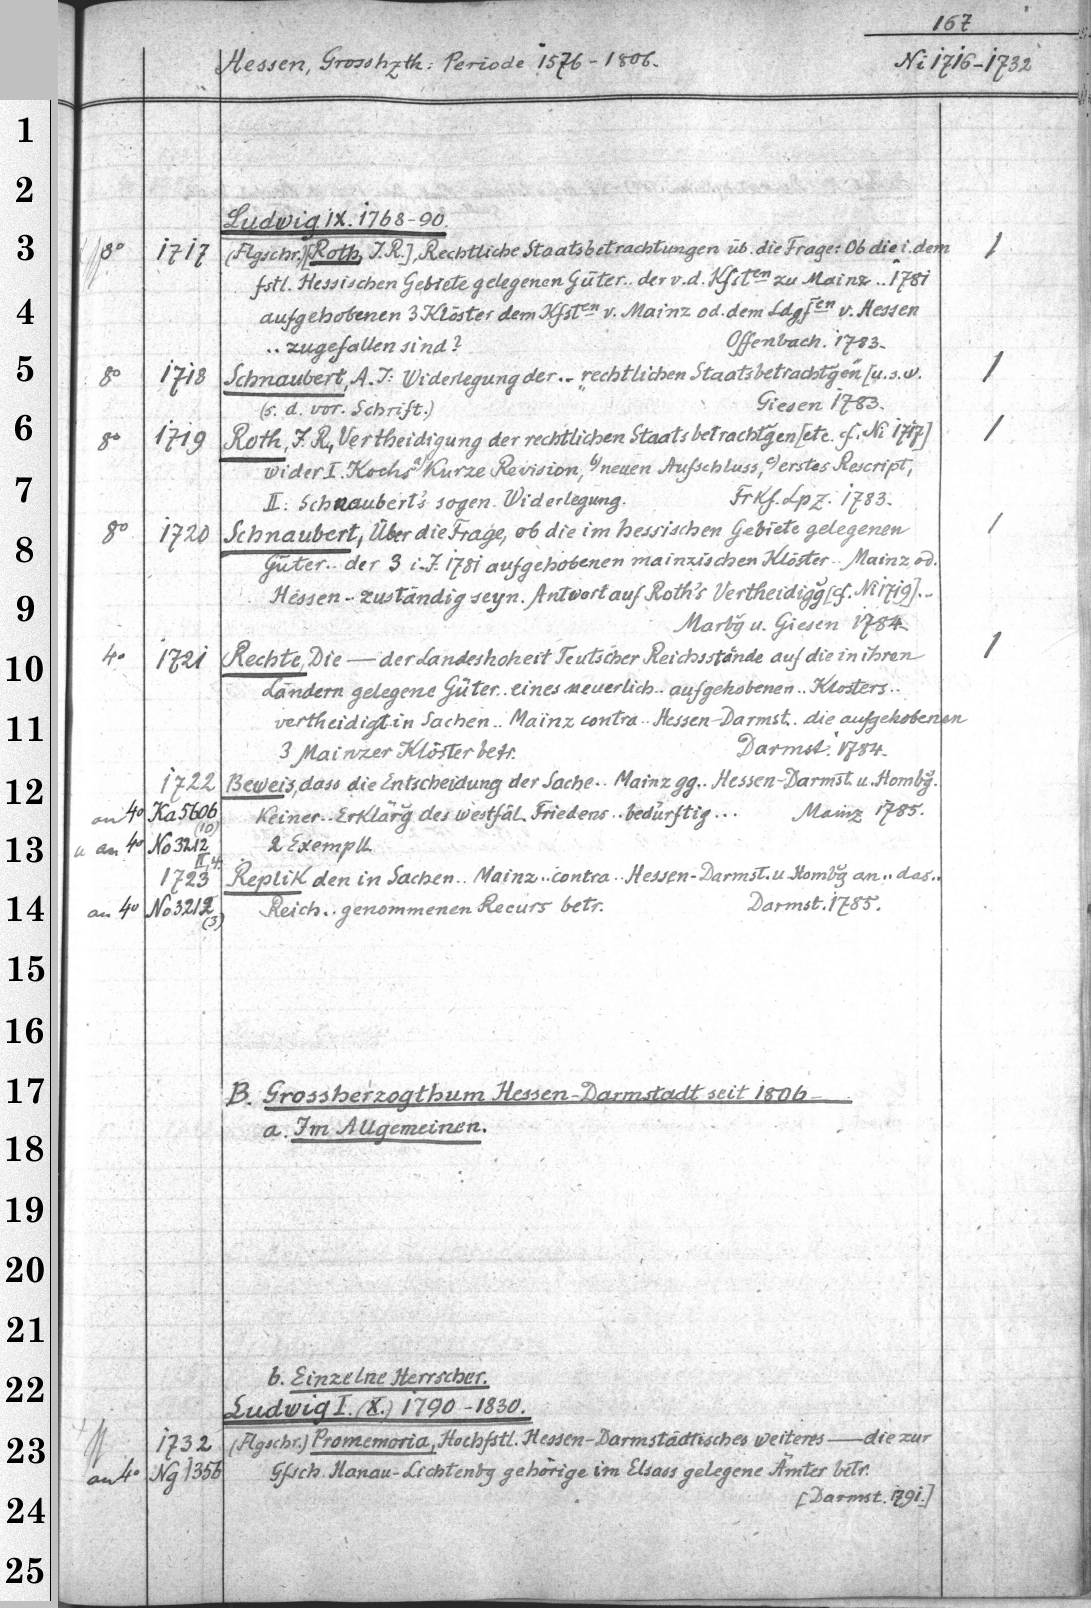 167
Hessen, Grosshzth: Periode 1576-1806. Ni 1716-1732
1
2
Ludwig IX. 1768-90.
3 8° 1717 (Flgschr.)[Roth, J.R.], Rechtliche Staatsbetrachtungen üb. die Frage: Ob die i. dem 1
fstl. Hessischen Gebiete gelegenen Güter.. der v.d. Kfsten zu Mainz .. 1781
4 aufgehobenen 3 Klöster dem Kfsten v. Mainz od. dem Ldgfen v. Hessen
.. zugefallen sind? Offenbach. 1783.
5 8° 1718 Schnaubert, A.J: Widerlegung der .. „rechtlichen Staatsbetrachtgen" [u.s.w. 1
(s. d. vor. Schrift.) Giesen 1783.
6 8° 1719 Roth, J.R., Vertheidigung der rechtlichen Staatsbetrachtgen [etc. cf. Ni 1717] 1
wider I. Kochs a) Kurze Revision, b) neuen Aufschluss, c) erstes Rescript,
7 II: Schnaubert's sogen. Widerlegung. Frkf. Lpz. 1783.
8° 1720 Schnaubert, Über die Frage, ob die im hessischen Gebiete gelegenen 1
8 Güter .. der 3 i.J. 1781 aufgehobenen mainzischen Klöster .. Mainz od.
9 Hessen .. zuständig seyn. Antwort auf Roth's Vertheidigg [cf. Ni 1719]...
Marbg u. Giesen 1784.
10 4° 1721 Rechte, Die — der Landeshoheit Teutscher Reichsstände auf die in ihren 1
Ländern gelegene Güter .. eines neuerlich .. aufgehobenen .. Klosters ..
11 vertheidigt in Sachen .. Mainz contra .. Hessen-Darmst. die aufgehobenen
3 Mainzer Klöster betr. Darmst. 1784.
12 1722 Beweis, dass die Entscheidung der Sache .. Mainz gg .. Hessen-Darmst. u. Hombg.
an 4° Ka 5606 (10) Keiner .. Erklärg des westfäl. Friedens .. bedürftig ... Mainz 1785.
13 u an 4° No 3212 II, 4. 2 Exempll.
1723 Replik den in Sachen .. Mainz .. contra .. Hessen-Darmst. u Hombg an .. das ..
14 an 4° No 3212 (3) Reich .. genommenen Recurs betr. Darmst. 1785.
15
16
17 B. Grossherzogthum Hessen-Darmstadt seit 1806
18 a. Im Allgemeinen.
19
20
21
22 b. Einzelne Herrscher.
Ludwig I. (X.) 1790-1830.
23 1732 (Flgschr.) Promemoria, Hochfstl. Hessen-Darmstädtisches weiteres — die zur
an 4° Ng 1356 Gfsch. Hanau-Lichtenbg gehörige im Elsass gelegene Ämter betr.
24 [Darmst. 1791.]
25